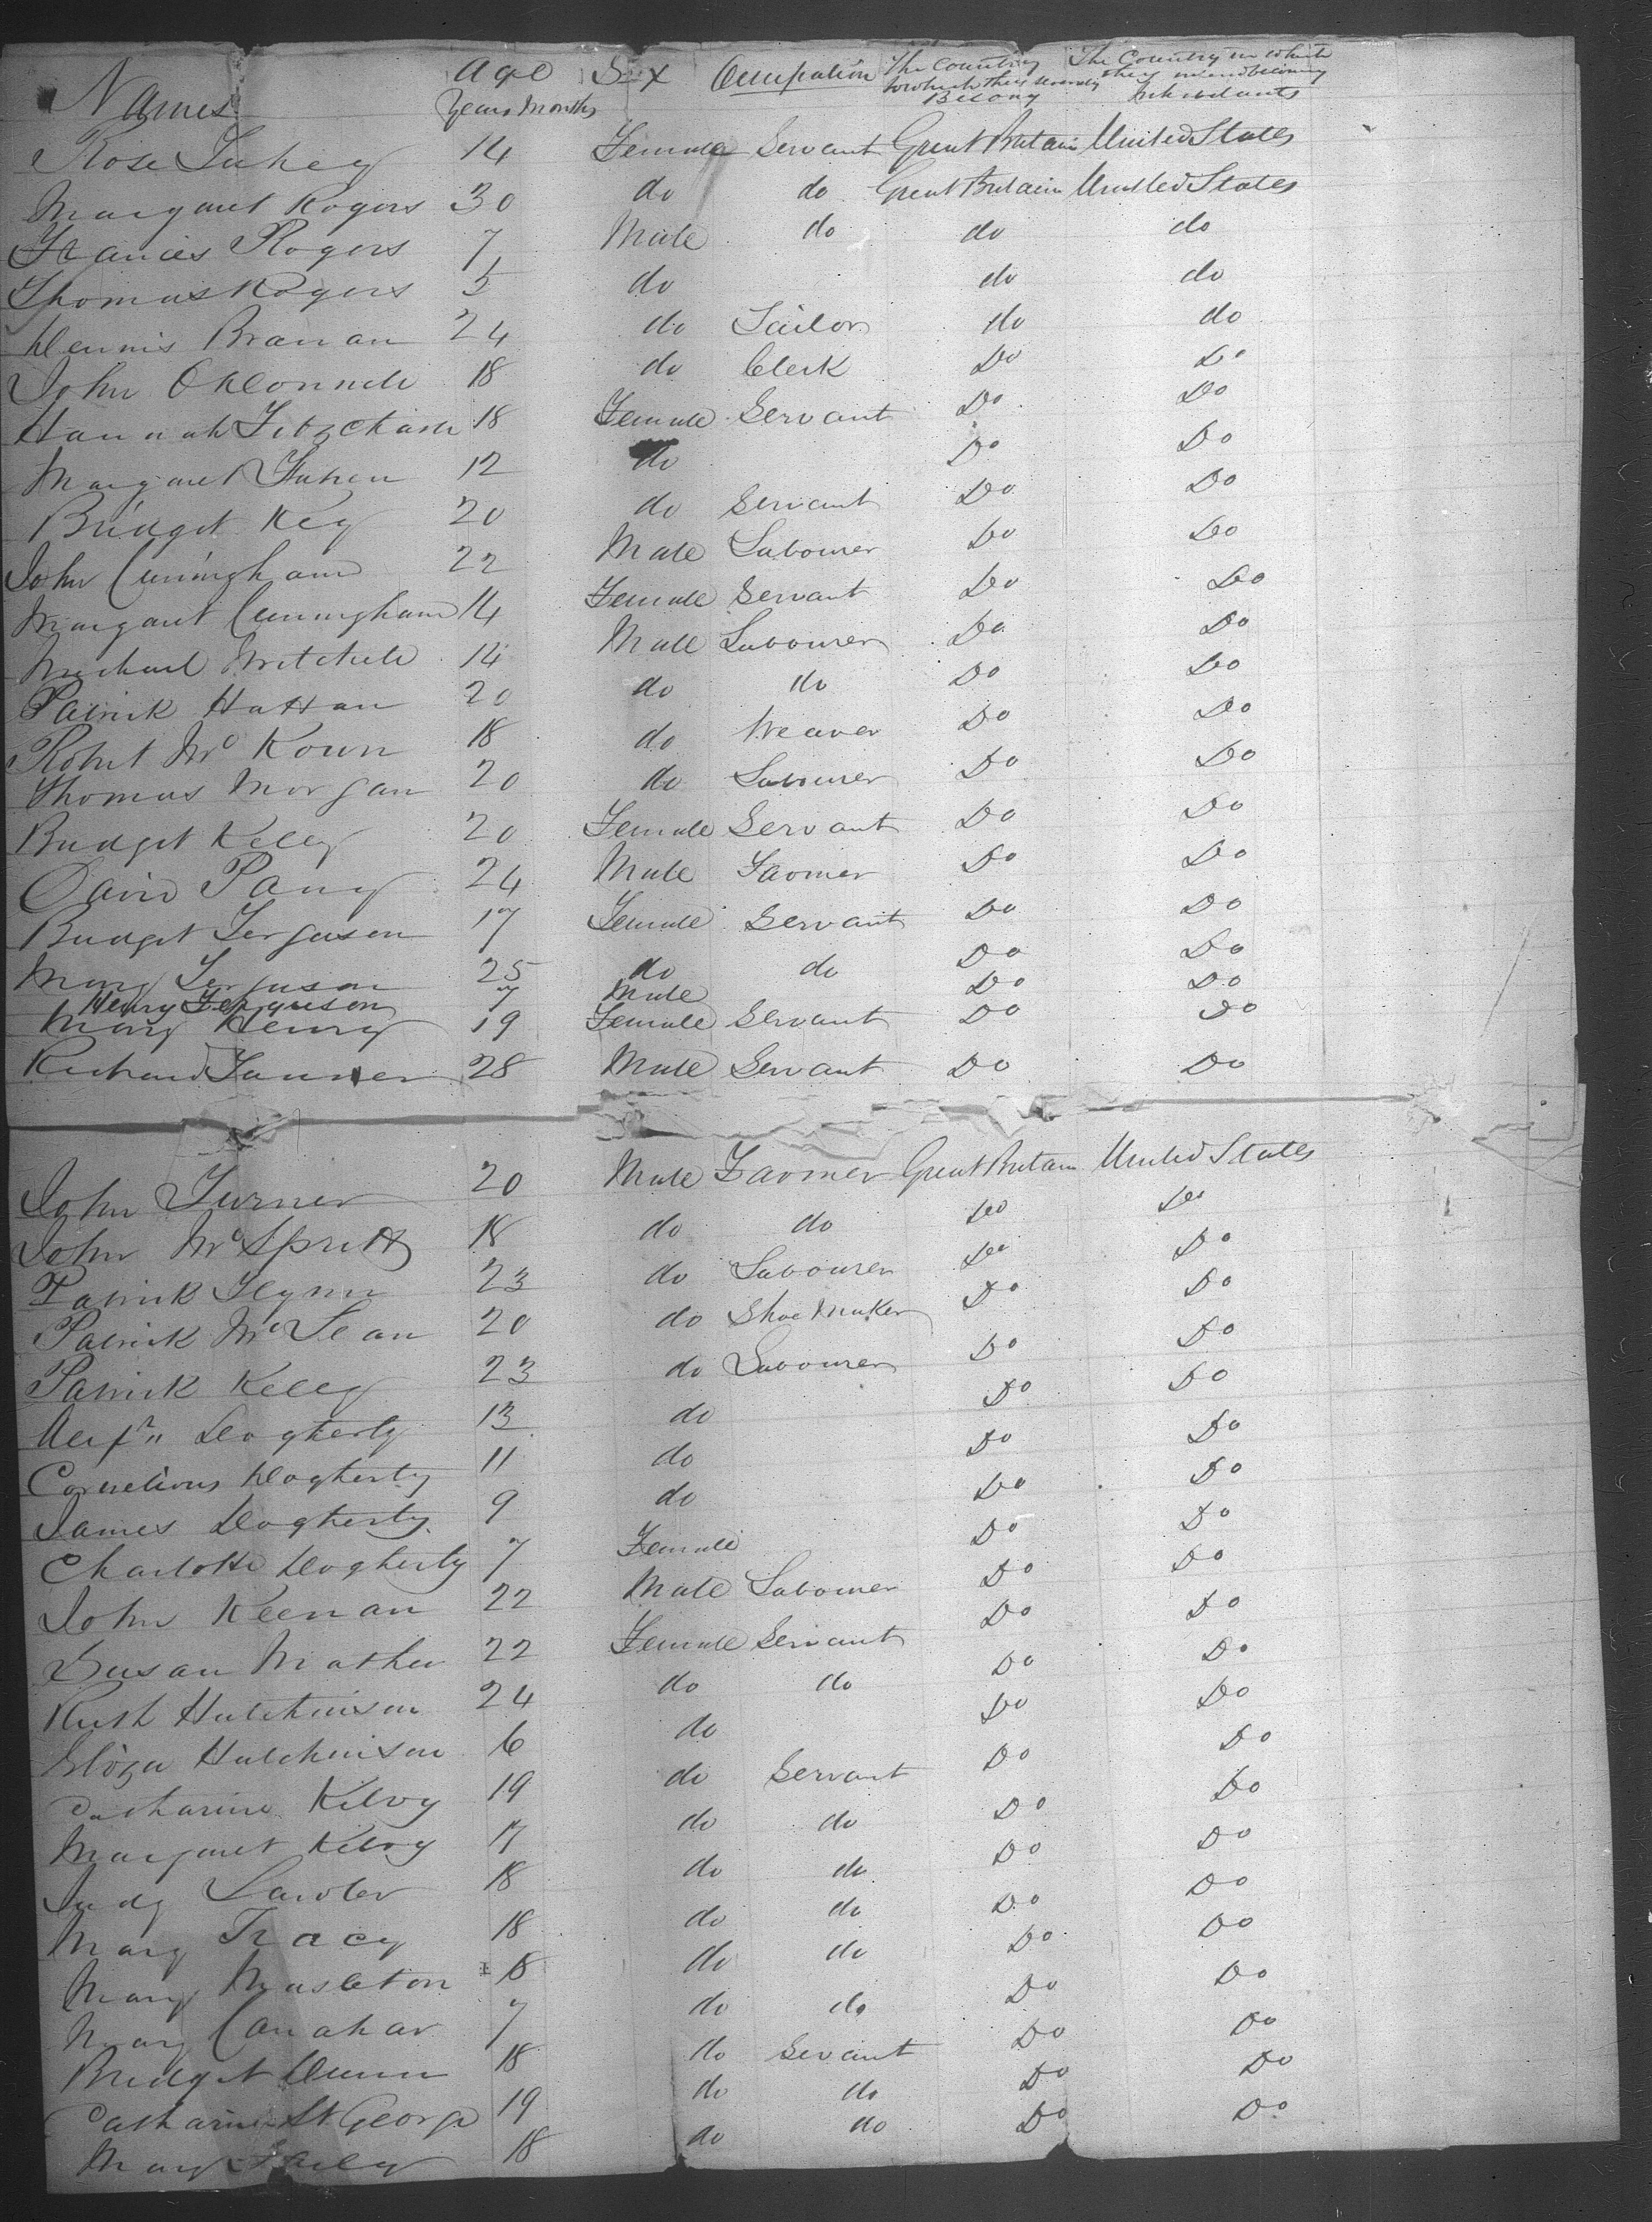 Names Age Sex Occupation The Country to which they severally Belong The Country in which they intend becoming Inhabitants
Years Months
Rose 14 Female Servant Great Britain United States
Margaret Rogers 30 do do Great Britain United States
Francies Rogers 7 Male do do do
Thomas Rogers 5 do do do
Dennis Branan 24 do Tailor do do
John OConnell 18 do Clerk Do Do
Hannah 18 Female Servant Do Do
Margaret 12 do Do Do
Bridget Key 20 do Servant Do Do
John Cuningham 22 Male Labourer Do Do
Margaret Cuningham 14 Female Servant Do Do
Michael Mitchell 14 Male Labourer Do Do
Patrick Hattan 20 do do Do Do
Robert Mc Koun 18 do Weaver Do Do
Thomas Morgan 20 do Labourer Do Do
Bridget Kelly 20 Female Servant Do Do
David 24 Male Farmer Do Do
Bridget Ferguson 17 Female Servant Do Do
Mary Ferguson 25 do do Do Do
Henry Ferguison 7 Male Do Do
Mary Henry 19 Female Servant Do Do
Richard Tanner 28 Male Servant Do Do
John Turner 20 Male Farmer Great Britain United States
John McSpritt 18 do do Do Do
Patrick Flynn 23 do Labourer Do Do
Patrick McLean 20 do Shoe Maker Do Do
Patrick Kelly 23 do Labourer Do Do
Dogherty 13 do Do Do
Cornelious Dogherty 11 do Do Do
James Dogherty 9 do Do Do
Charlotte Dogherty 7 Female Do Do
John Keenan 22 Male Labourer Do Do
Susan Mather 22 Female Servant Do Do
Ruth Hutchinson 24 do do Do Do
Eliza Hutchinson 6 do Do Do
Catharine Kilroy 19 do Servant Do Do
Margaret Kilroy 17 do do Do Do
Judy Lawler 18 do do Do Do
Mary Tracy 18 do do Do Do
Mary Masleton 18 do do Do Do
Mary Canahar 7 do do Do Do
Bridget Dunn 18 do Servant Do Do
Catharine St George 19 do do Do Do
Mary 18 do do Do Do